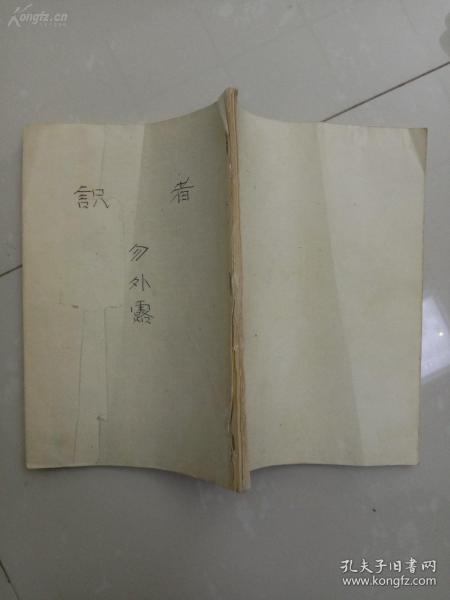 Kongfz.cn
识 者
勿外露
孔夫子旧书网
www.kongfz.com